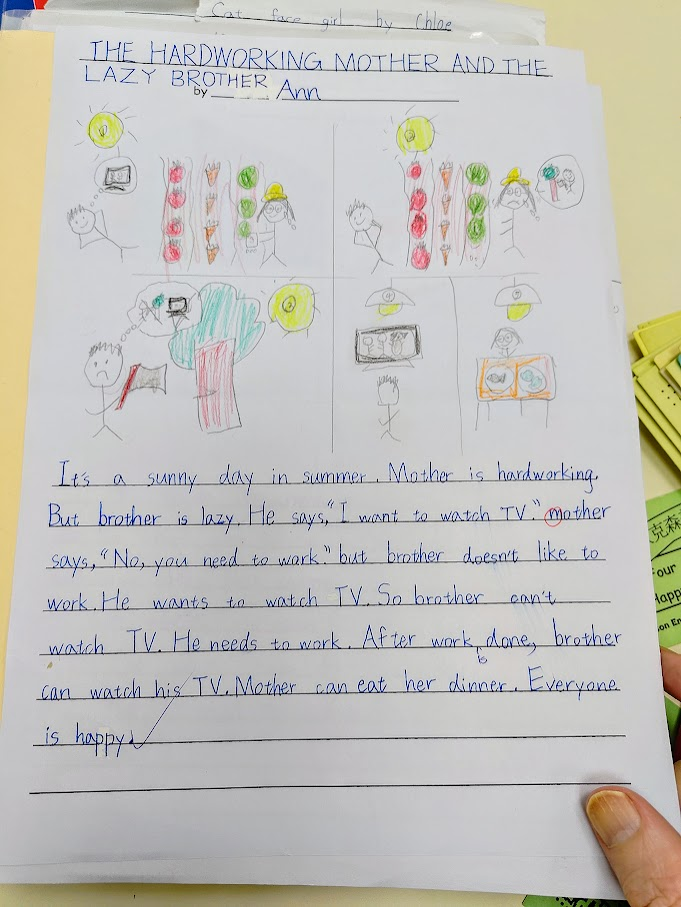 Cat face girl by Chloe
THE HARDWORKING MOTHER AND THE
LAZY BROTHER
by Ann
1
2
3
4
4
It's a sunny day in summer. Mother is hardworking.
But brother is lazy. He says, "I want to watch TV." mother
says, "No, you need to work." but brother doesn't like to
work. He wants to watch TV. So brother can't
watch TV. He needs to work. After work done, brother
is
can watch his TV. Mother can eat her dinner. Everyone
is happy.
克森
Four
Happ
on En